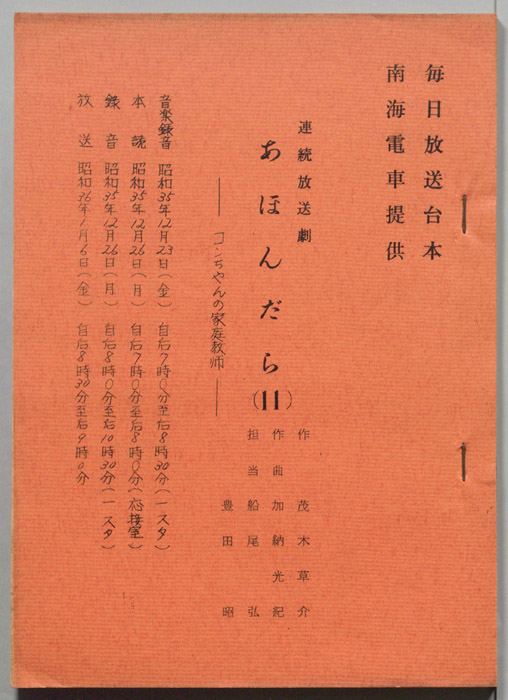 毎日放送台本
南海電車提供
連続放送劇
あほんだら(11)
――コンちやんの家庭教師――
作 茂木草介
作曲 加納光紀
担当 船尾弘
豊田昭
音楽録音 昭和35年12月23日(金) 自后7時0分至后8時30分(一スタ)
本読 昭和35年12月26日(月) 自后7時0分至后8時0分(応接室)
録音 昭和35年12月26日(月) 自后8時0分至后10時30分(一スタ)
放送 昭和36年1月6日(金) 自后8時30分至后9時0分